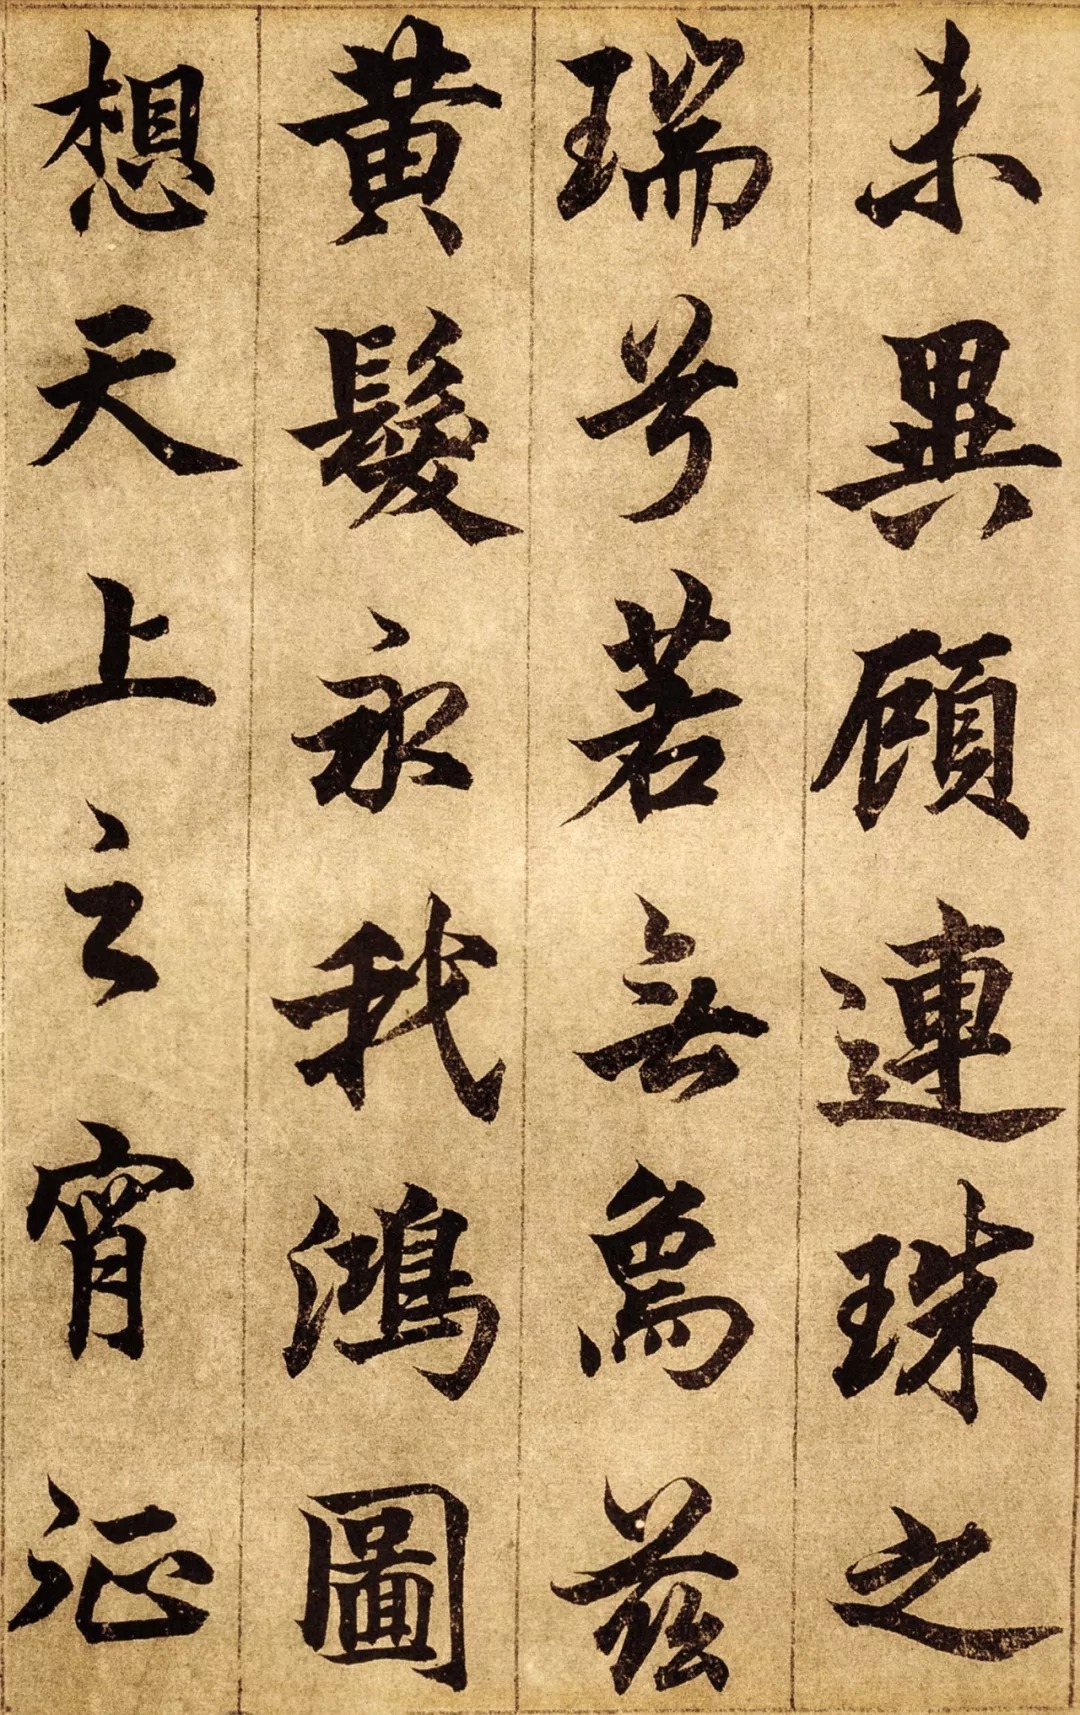 未異顧連珠之
瑞兮若無爲茲
黃髮永我鴻圖
想天上之宵征